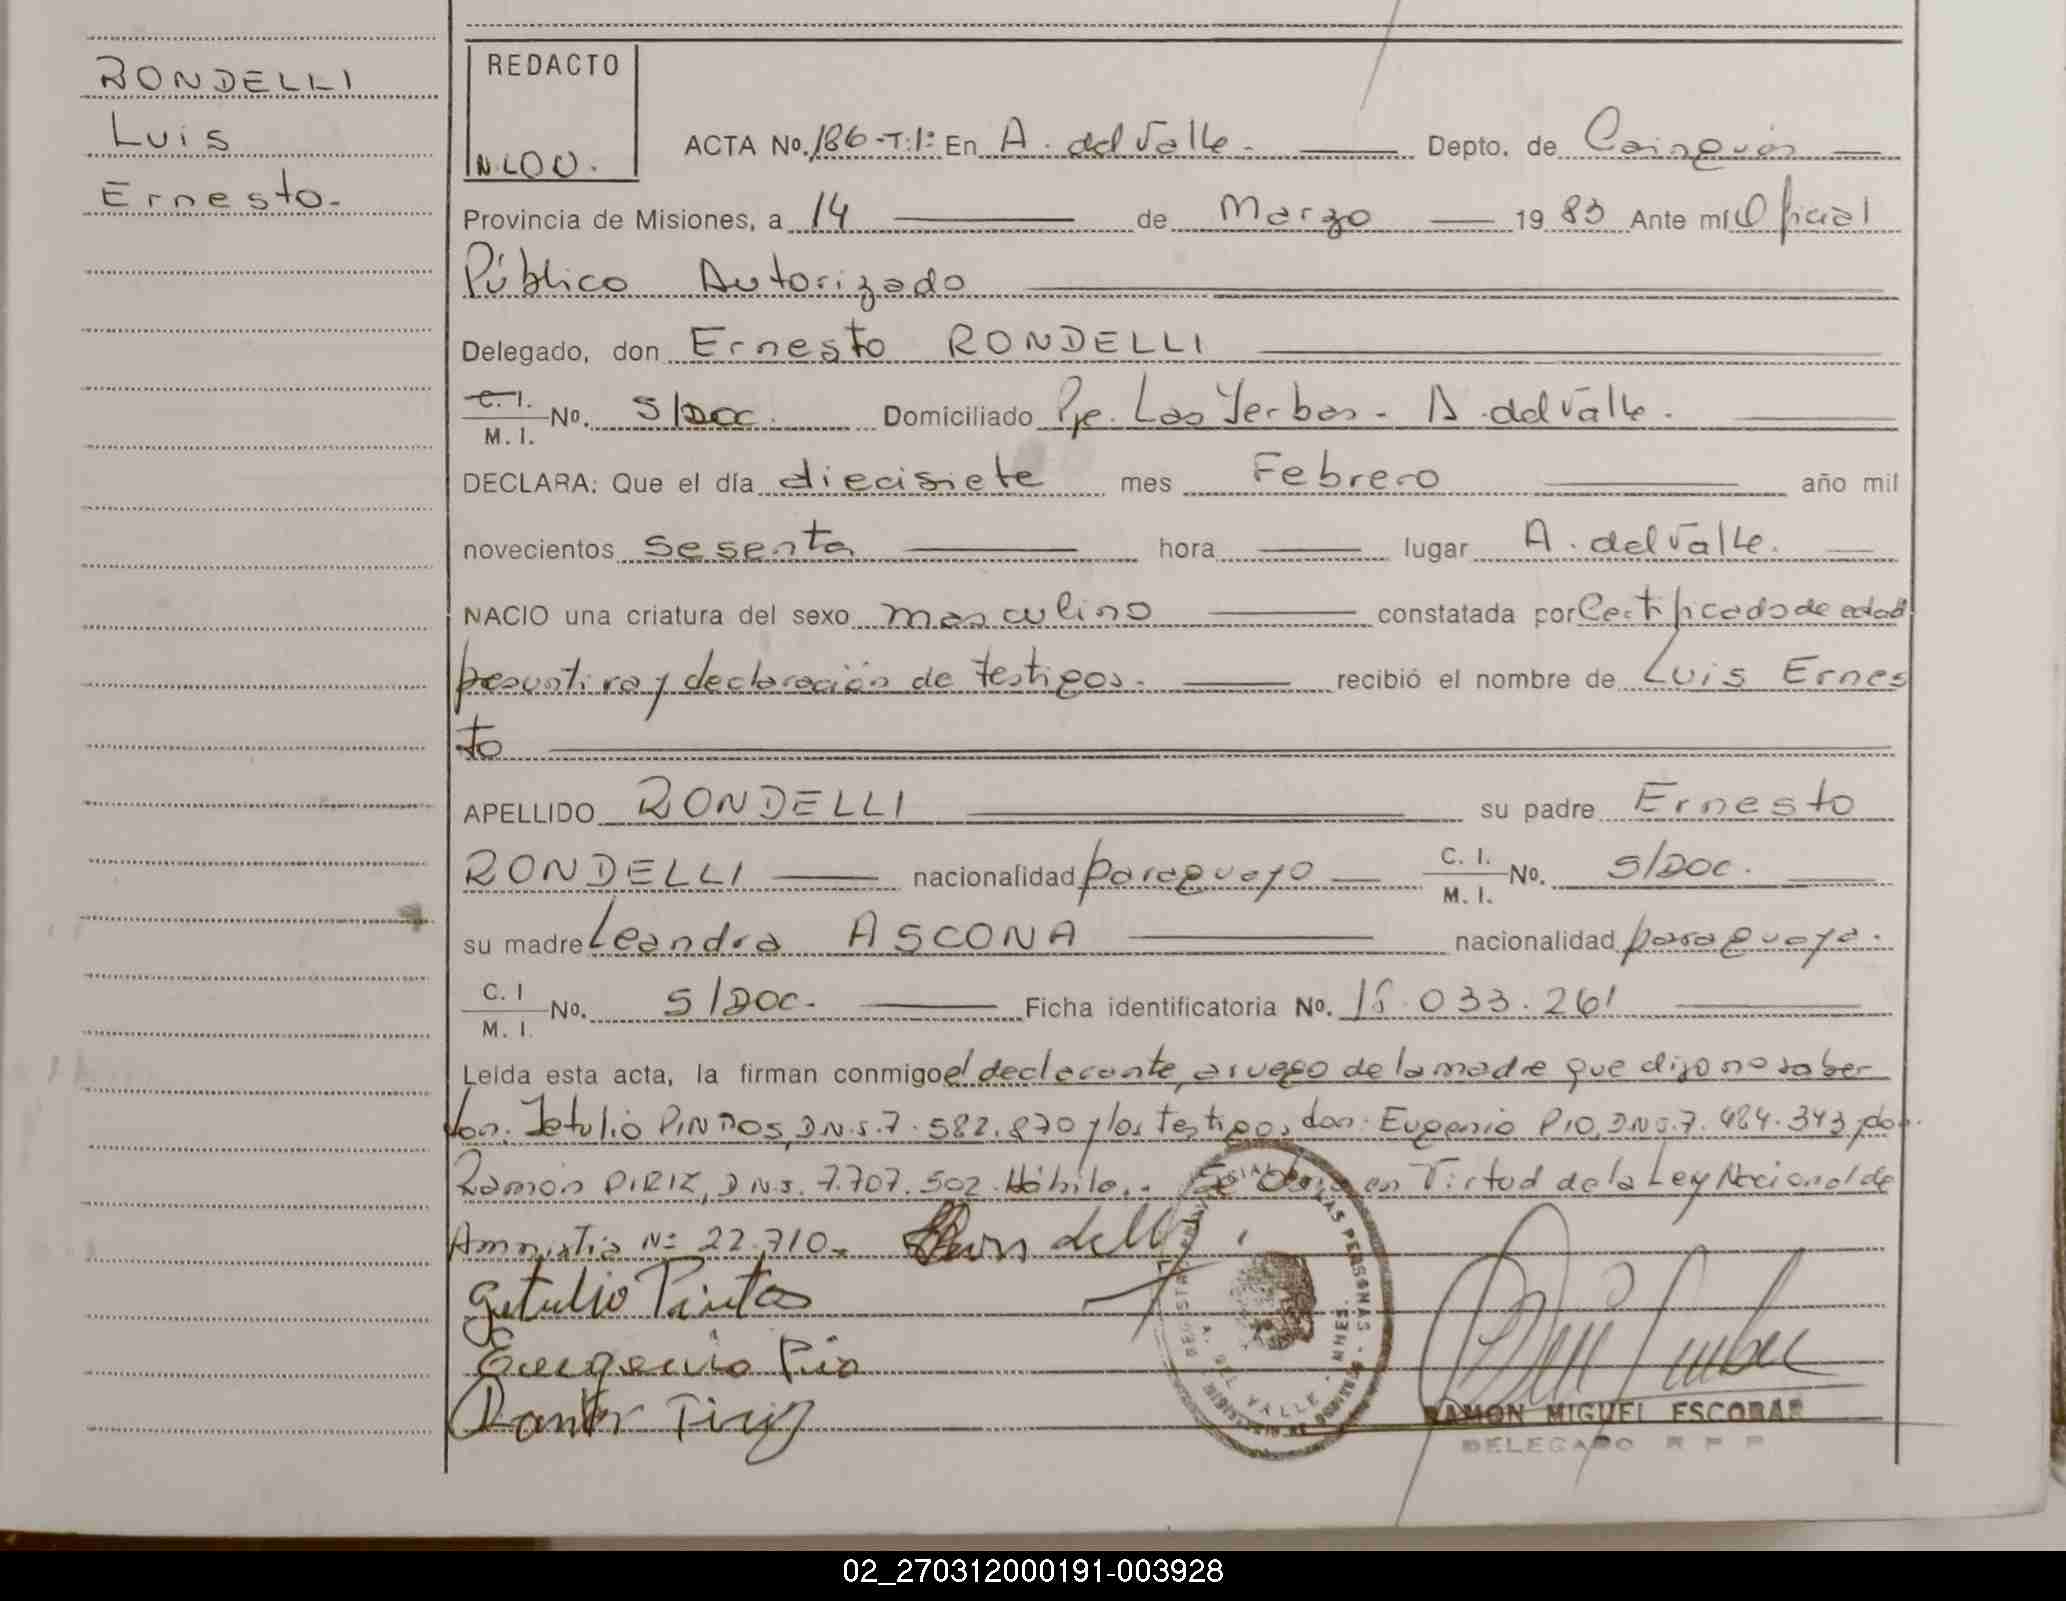 RONDELLI
Luis
Ernesto.-
REDACTO
N.LOV.
ACTA No. 186-T:1: En A. del Valle.- Depto. de Cainguás
Provincia de Misiones, a 14 de Marzo 1983 Ante mí Oficial
Público Autorizado
Delegado, don Ernesto RONDELLI
C. I.
M. I. No. S/Doc. Domiciliado Pje. Las Yerbas - A. del Valle.
DECLARA: Que el día diecisiete mes Febrero año mil
novecientos sesenta hora lugar A. del Valle.
NACIO una criatura del sexo masculino constatada por Certificado de edad
presuntiva y declaración de testigos.- recibió el nombre de Luis Ernes
to
APELLIDO RONDELLI su padre Ernesto
RONDELLI nacionalidad paraguayo C. I.
M. I. No. S/Doc.
su madre Leandra ASCONA nacionalidad paraguaya.
C. I
M. I. No. S/Doc. Ficha identificatoria No. 033.261
Leída esta acta, la firman conmigo el declarante, a ruego de la madre que dijo no saber
don. Jetulio DNI.7.582.870 y los testigos don: Eugenio PIO, DNI.7.484.343 y don
Ramón PIRIZ, DNI. 7.707.502. Hábiles.- Se labra en Virtud de la Ley Nacional de
Amnistia Nº 22.710.-
Getulio Pintos
Eugenio Pio
Ramon Piriz
REGISTRO PROVINCIAL DE LAS PERSONAS
A. DEL VALLE - MNES.
RAMON MIGUEL ESCOBAR
DELEGADO R P P
02_270312000191-003928